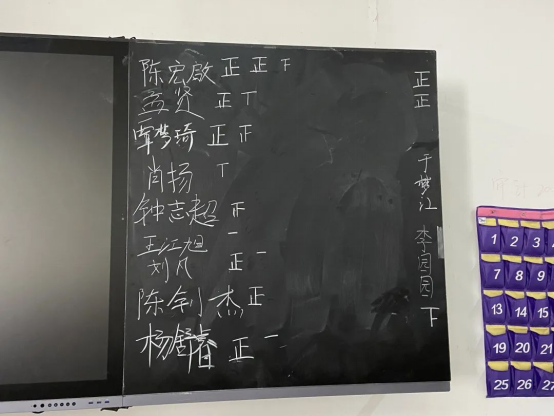 陈宏啟 正 正 下
孟贤 正 丅
覃梦琦 正 正
肖扬 丅
钟志超 正
王江旭 一
刘凡 正 一
陈钊杰 正
杨舒春 正 一
正
正
于梦江
李园园
下
1 2 3
7 8 9
13 14 15
19 20 21
25 26 27